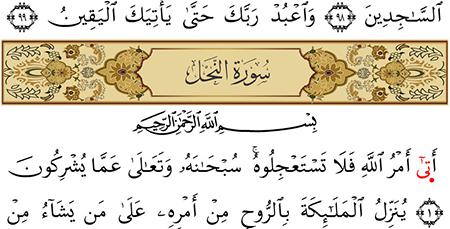 ٱلسَّـٰجِدِينَ ﴿٩٨﴾ وَٱعْبُدْ رَبَّكَ حَتَّىٰ يَأْتِيَكَ ٱلْيَقِينُ ﴿٩٩﴾
سُورَةُ النَّحْل
بِسْمِ ٱللَّهِ ٱلرَّحْمَـٰنِ ٱلرَّحِيمِ
أَتَىٰٓ أَمْرُ ٱللَّهِ فَلَا تَسْتَعْجِلُوهُ ۚ سُبْحَـٰنَهُۥ وَتَعَـٰلَىٰ عَمَّا يُشْرِكُونَ
﴿١﴾ يُنَزِّلُ ٱلْمَلَـٰٓئِكَةَ بِٱلرُّوحِ مِنْ أَمْرِهِۦ عَلَىٰ مَن يَشَآءُ مِنْ